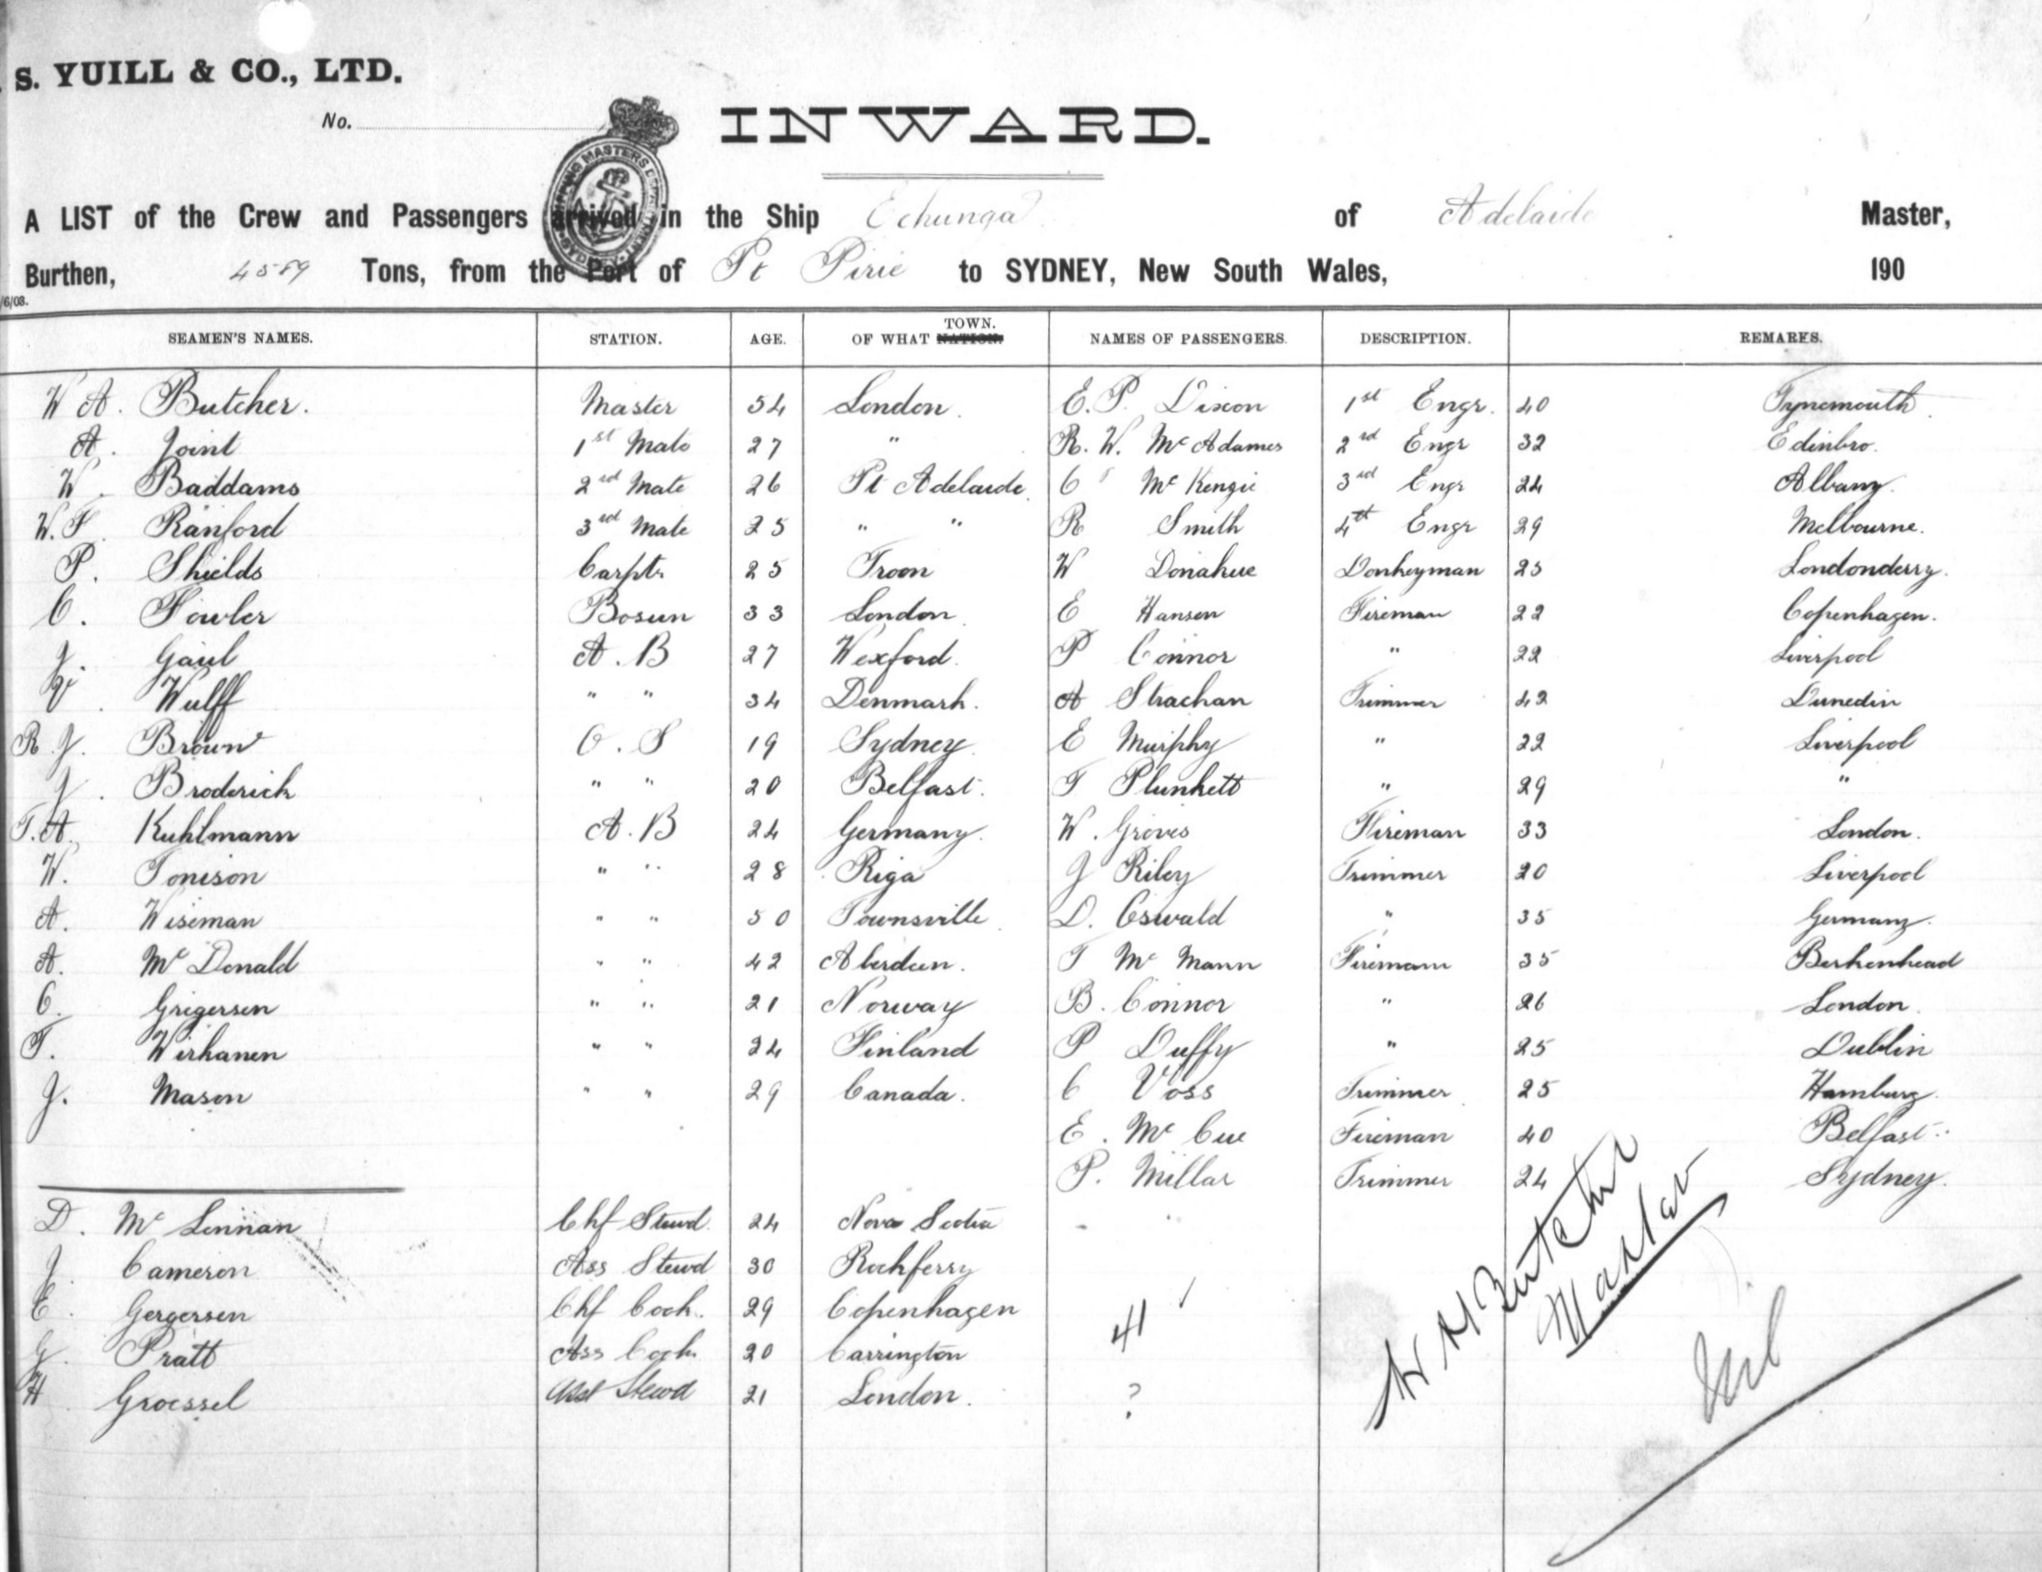 S. YUILL & CO., LTD.
No.
INWARD.
A LIST of the Crew and Passengers arrived in the Ship Echunga of Adelaide Master,
Burthen, 4589 Tons, from the Port of Pt Pirie to SYDNEY, New South Wales, 190
/6/08.
SEAMEN'S NAMES. STATION. AGE. OF WHAT NATION. TOWN. NAMES OF PASSENGERS. DESCRIPTION. REMARKS.
W A. Butcher. Master 54 London. E. P. Dixon 1st Engr. 40 Tynemouth.
A. Joint 1st Mate 27 " R. W. Mc Adames 2rd Engr 32 Edinbro.
W. Baddams 2rd Mate 26 Pt Adelaide. C Mc Kenzie 3rd Engr 24 Albany.
W. F. Ranford 3rd Mate 25 " " R Smith 4th Engr 29 Melbourne.
P. Shields Carptr 25 Troon W Donahue Donkeyman 25 Londonderry.
C. Fowler Bosun 33 London. E Hansen Fireman 22 Copenhagen.
J. Gaul A. B 27 Wexford. P Connor " 22 Liverpool
V. Wulff " " 34 Denmark. A Strachan Trimmer 42 Dunedin
R. J. Brown O. S 19 Sydney. E Murphy " 22 Liverpool
J. Broderick " " 20 Belfast. T Plunkett " 29 "
T. A. Kuhlmann A. B 24 Germany. W. Groves Fireman 33 London.
W. Tonison " " 28 Riga J Riley Trimmer 20 Liverpool
A. Wiseman " " 50 Townsville. D. Oswald " 35 Germany.
A. Mc Donald " " 42 Aberdeen. T Mc Mann Fireman 35 Berkenhead
C. Grigersen " " 21 Norway B. Connor " 26 London.
T. Wirhanen " " 24 Finland P Duffy " 25 Dublin
J. Mason " " 29 Canada. C Voss Trimmer 25 Hamburg.
E. Mc Cue Fireman 40 Belfast.
P. Millar Trimmer 24 Sydney.
D. Mc Lennan Chf Stewd. 24 Nova Scotia
J. Cameron Ass Stewd 30 Rockferry
E. Gergersen Chf Cook. 29 Copenhagen
G. Pratt Ass Cook. 20 Carrington
H Groessel Asst Stewd 21 London.
41
?
W A Butcher
Master
Nil